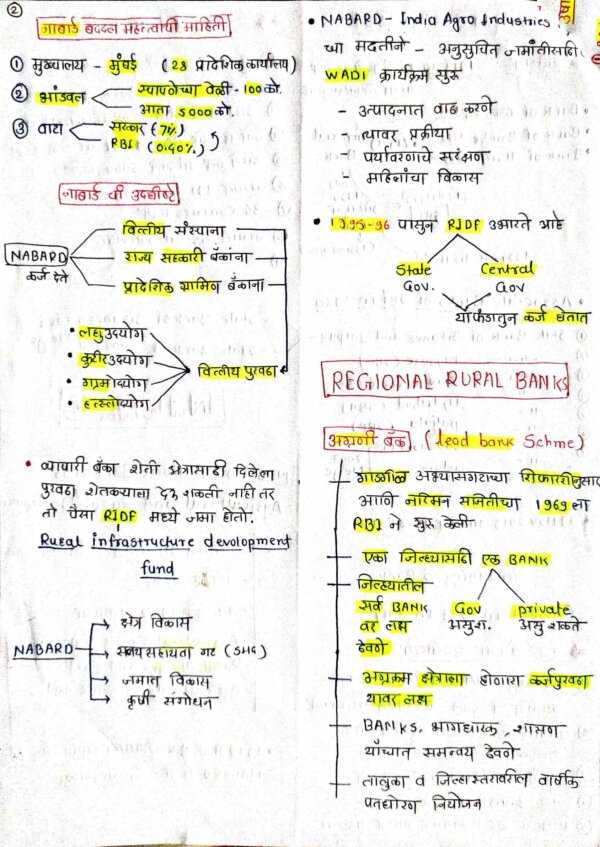 ②
नाबार्ड बद्दल महत्वाची माहिती
① मुख्यालय - मुंबई (28 प्रादेशिक कार्यालय)
② भांडवल
स्थापनेच्या वेळी - 100 को.
आता 5000 को.
③ वाटा
सरकार (
RBI (0.40%)
नाबार्ड ची उद्दीष्टे
NABARD
कर्ज देते
वित्तीय संस्थाना
राज्य सहकारी बँकांना
प्रादेशिक ग्रामिण बँकांना
• लघु उदयोग
• कुटीर उदयोग
• ग्रामोदयोग
• हस्तोदयोग
वित्तीय पुरवठा
• व्यापारी बँका शेती क्षेत्रासाठी दिलेला
पुरवठा शेतकऱ्याला देऊ शकली नाही तर
तो पैसा RIDF मध्ये जमा होतो.
Rural infrastructure devolopment
fund
NABARD
क्षेत्र विकास
सहायता गट (SHG)
जमात विकास
कृषी संशोधन
• NABARD - India Agro Industries
च्या मदतीने - अनुसुचित जमातीसाठी
WADI कार्यक्रम सुरू
- उत्पादनात वाढ करणे
- त्यावर प्रक्रीया
- पर्यावरणाचे संरक्षण
- महिलांचा विकास
• 1995-96 पासुन RIDF उभारते आहे
State
Gov.
Central
Gov
याफंडातुन कर्ज घेतात
REGIONAL RURAL BANKS
अग्रणी बँक (lead bank Schme)
गाडगीळ अभ्यासगटाच्या शिफारशीनुसार
आणि नरिमन समितीच्या 1969 ला
RBI ने सुरू केली
एका जिल्ह्यासाठी एक BANK
जिल्ह्यातील
सर्व BANK
वर लक्ष
ठेवणे
Gov
असु श.
private
असु शकते
अग्रक्रम क्षेत्राला होणारा कर्जपुरवठा
यावर लक्ष
BANKS, भागधारक, शासण
यांच्यात समन्वय ठेवणे
तालुका व जिल्हास्तरावरील वार्षीक
पतधोरण नियोजन